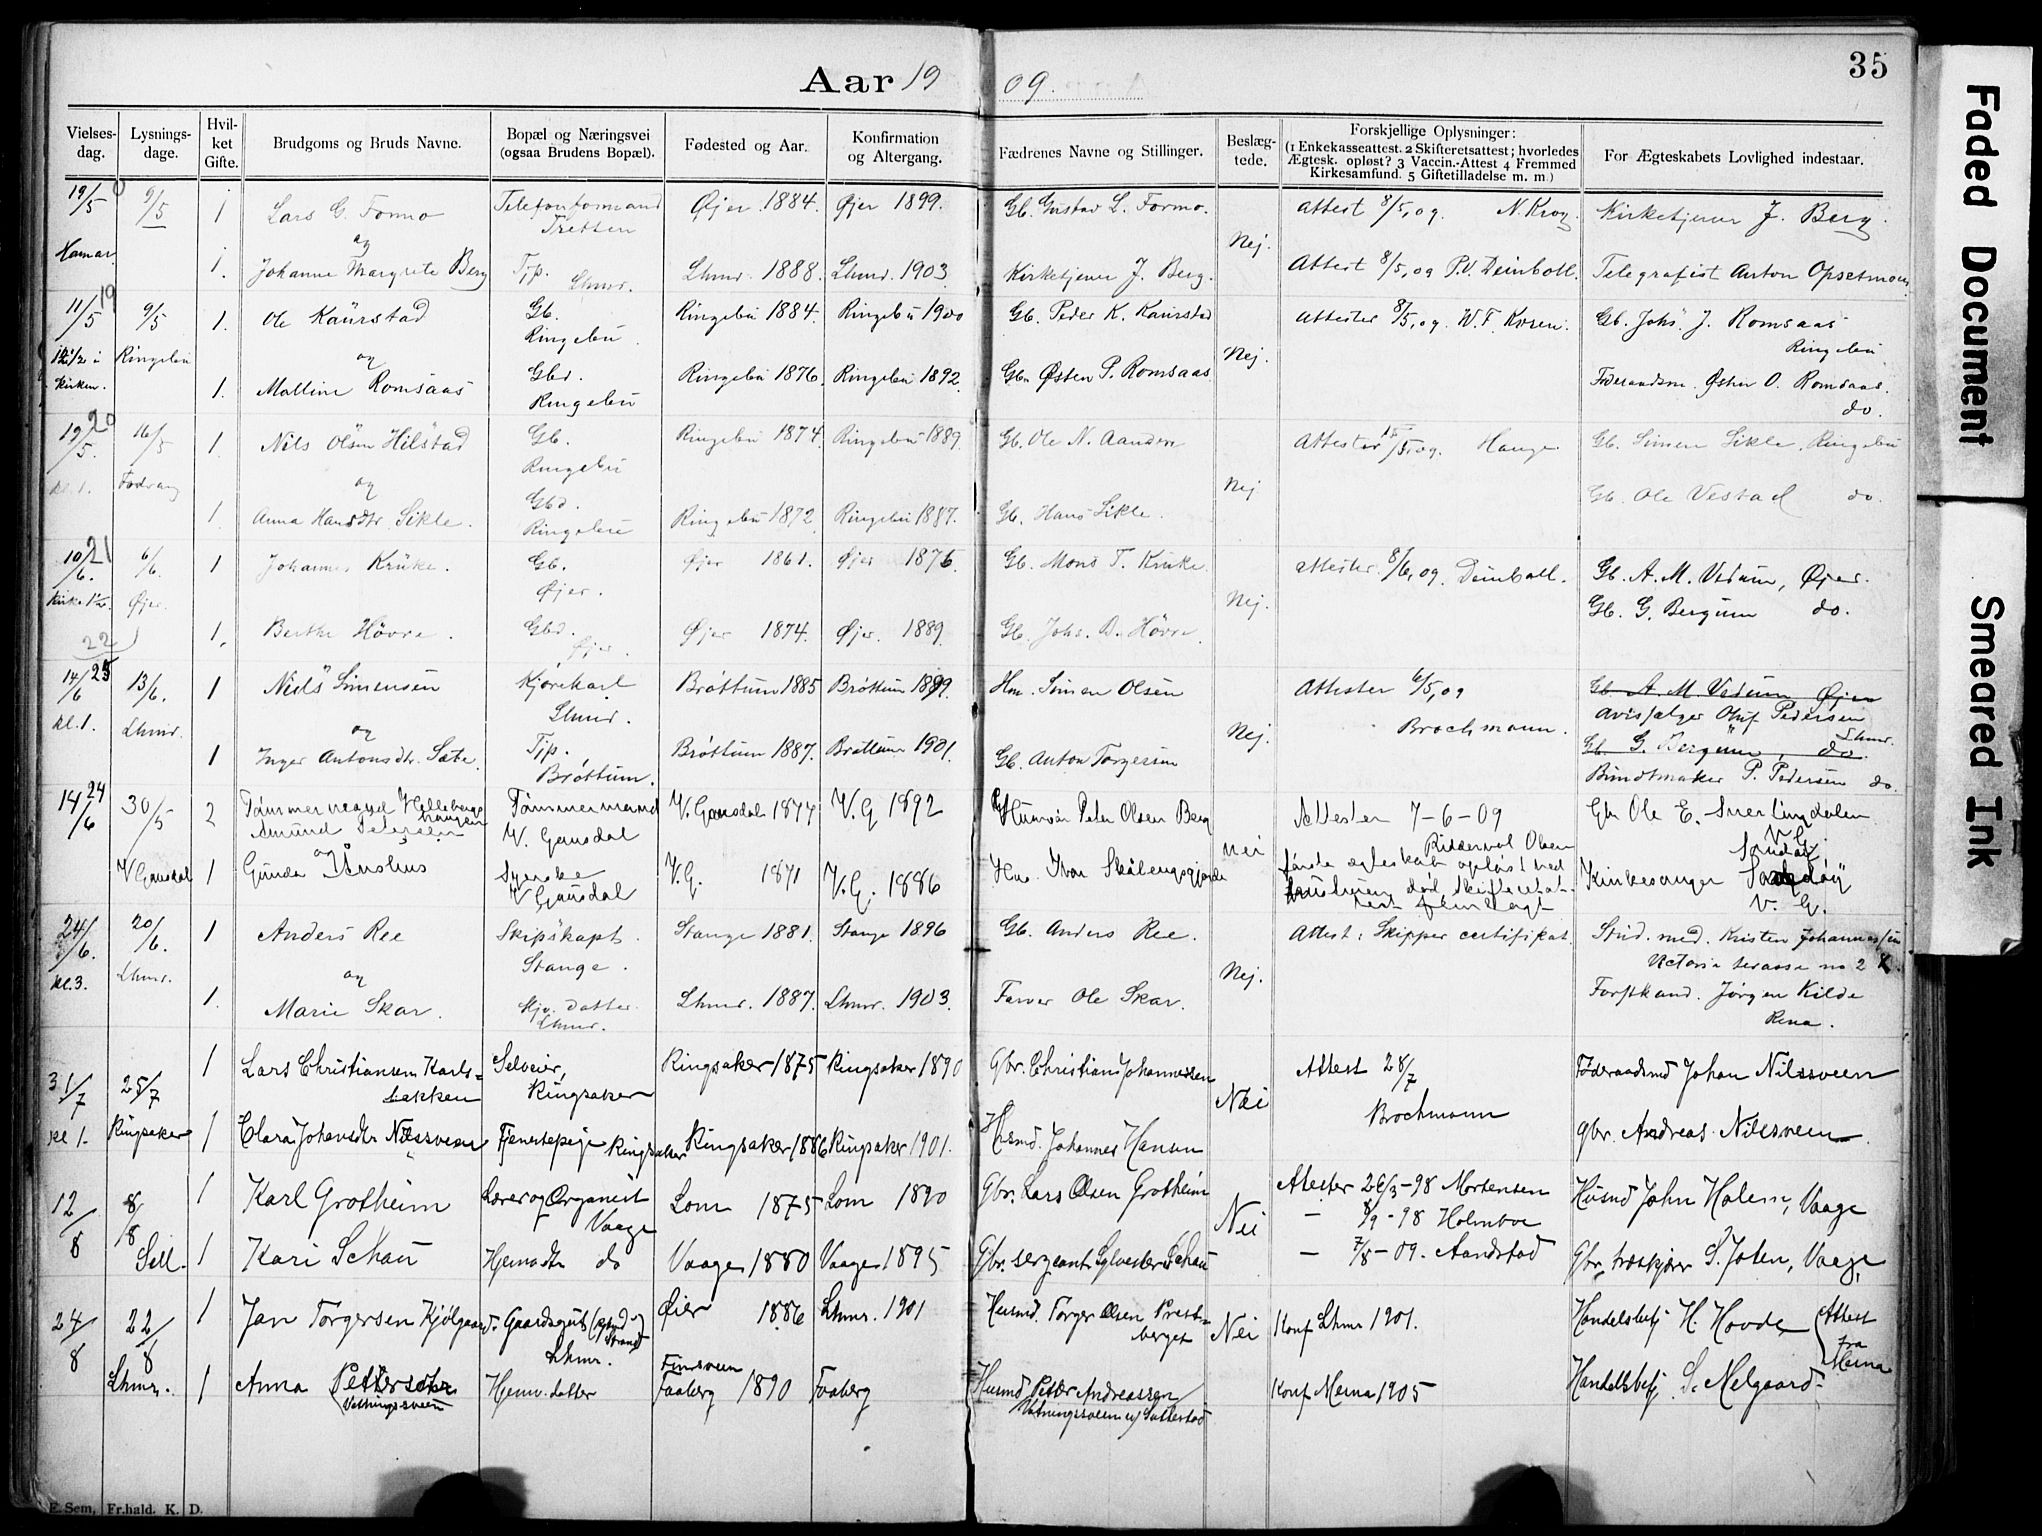 35
Aar 1909.
Vielses-dag. Lysnings-dage. Hvil-ket Gifte. Brudgoms og Bruds Navne. Bopæl og Næringsvei (ogsaa Brudens Bopæl). Fødested og Aar. Konfirmation og Altergang. Fædrenes Navne og Stillinger. Beslæg-tede. Forskjellige Oplysninger: (1 Enkekasseattest. 2 Skifteretsattest; hvorledes Ægtesk. opløst? 3 Vaccin.-Attest 4 Fremmed Kirkesamfund. 5 Giftetilladelse m. m.) For Ægteskabets Lovlighed indestaar.
19/5 9/5 1 Lars G. Formo Telefonformand Øjer 1884. Øjer 1899. Gb. Gustav L. Formo. Attest 8/5,09. N. Krog Kirketjener J. Berg.
Tretten
og Nej.
Hamar 1. Johanne Margrete Berg Tjp. Lhmr. Lhmr. 1888. Lhmr. 1903. Kirketjener J. Berg. Attest 8/5,09 P.V. Deinboll. Telegrafist Anton Opsetmoen
19
11/5 9/5 1. Ole Kaurstad Gb. Ringebu 1884. Ringebu 1900 Gb. Peder K. Kaurstad Attester 8/5,09. W. F. Koren. Gb. Johs. J. Romsaas
Ringebu Ringebu
12 1/2 i Ringebu og Nej.
Kirken. 1. Mathine Romsaas Gbd. Ringebu 1876. Ringebu 1892. Gb. Østen P. Romsaas. Føderaadsm. Østen O. Romsaas.
Ringebu do.
20
19/5. 16/5 1 Nils Olsen Hilstad Gb. Ringebu 1874. Ringebu 1889. Gb. Ole N. Aanden Attester 15/5,09. Hauge Gb. Simen Sikle, Ringebu
Ringebu
kl. 1. Fodvang og Gbd. Nej Gb. Ole Vestad do.
1. Anna Hansdtr. Sikle. Ringebu Ringebu 1872 Ringebu 1887. Gb. Hans Sikle.
21
10/6. 6/6. 1 Johannes Kruke. Gb. Øjer 1861. Øjer 1876. Gb. Mons T. Kruke Attester 8/6,09. Deinboll. Gb. A. M. Vedum, Øjer.
Kirke Øjer. Øjer. Nej. Gb. G. Bergum do.
22 1. Berthe Hovre. Gbd. Øjer. Øjer 1874. Øjer. 1889. Gb. Johs. D. Hovre.
14/6 13/6. 1 Nils Simensen Kjørekarl Brøttum 1885 Brøttum 1899. Hm. Simen Olsen Attester 6/5,09 Gb. A. M. Vedum Øjer
Lhmr. Avissælger Oluf Pedersen
kl. 1. Lhmr. og Nej. Brochmann. Lhmr.
1 Inger Antonsdtr. Sæte. Tjp. Brøttum 1887. Brøttum 1901. Gb. Anton Torgersen Gb. G. Bergum, do.
Brøttum. Buntmaker P. Pedersen do.
24
14/6 30/5 2 Tømmermand Amund Petersen Tømmermand V. Gausdal 1874 V. G 1892 Peter Olsen Berg Attester 7-6-09 Gbr Ole E. Snerlingdalen
V. Gausdal nei Riddervol Olsen V. G.
V Gausdal 1 Gunda og V. Gausdal V. G. 1871 V. G. 1886 Hm. Ivar ægteskab opløst ved Kirkesanger
V. G.
24/6. 20/6. 1 Anders Ree Skipskapt. Stange 1881. Stange 1896 Gb. Anders Ree. Attest: Skipper certifikat. Stud. med. Kristen Johannessen
Stange. Victoria terasse no 2 K.
kl. 3. Lhmr. og Nej.
1. Marie Skar. Hjv. datter Lhmr. 1887. Lhmr. 1903. Farver Ole Skar. Forstkand. Jørgen Kilde
Lhmr. Rena.
1 Lars Christiansen Karls- Selveier, Ringsaker 1875 Ringsaker 1890 Gbr. Christian Johannessen Attest 28/7 Føderaadsmd Johan Nilssveen
31/7 25/7 bakken Ringsaker Nei Brochmann
kl 1. Ringsaker 1 Clara Johansdtr Nilssveen Tjenestepige Ringsaker Ringsaker 1886 Ringsaker 1901. Husmd. Johannes Hansen gbr. Andreas Nilssveen.
12/8 8/8 1 Karl Grotheim Lærer og Organist Lom 1875 Lom 1890 Gbr. Lars Olsen Grotheim Attester 26/3-98 Mortensen Husmd John Holem, Vaage
Vaage Nei — 8/9-98 Holmboe
Sell. 1 Kari Schau Hjemvdtr do Vaage 1880 Vaage 1895 Gbr. sergeant Sylvester Schau — 7/8-09. Aandstad Gbr, træskjær S. Joten, Vaage,
24/8 22/8 1 Jan Torgersen Kjølgaard. Gaardsgut Øier 1886 Lhmr. 1901 Husmd. Torger Olsen Prest- Nei Konf. Lhmr 1901. Handelsbetj H. Hovde Attest
Lhmr. berget fra
Mesna
Lhmr. 1 Anna Pettersdtr Hjemv. datter Faaberg 1890 Faaberg Husmd Petter Andreassen Konf Mesna 1905 Handelsbetj S. Melgaard.
E. Sem, Fr.hald. K. D.
Faded Document
Smeared Ink